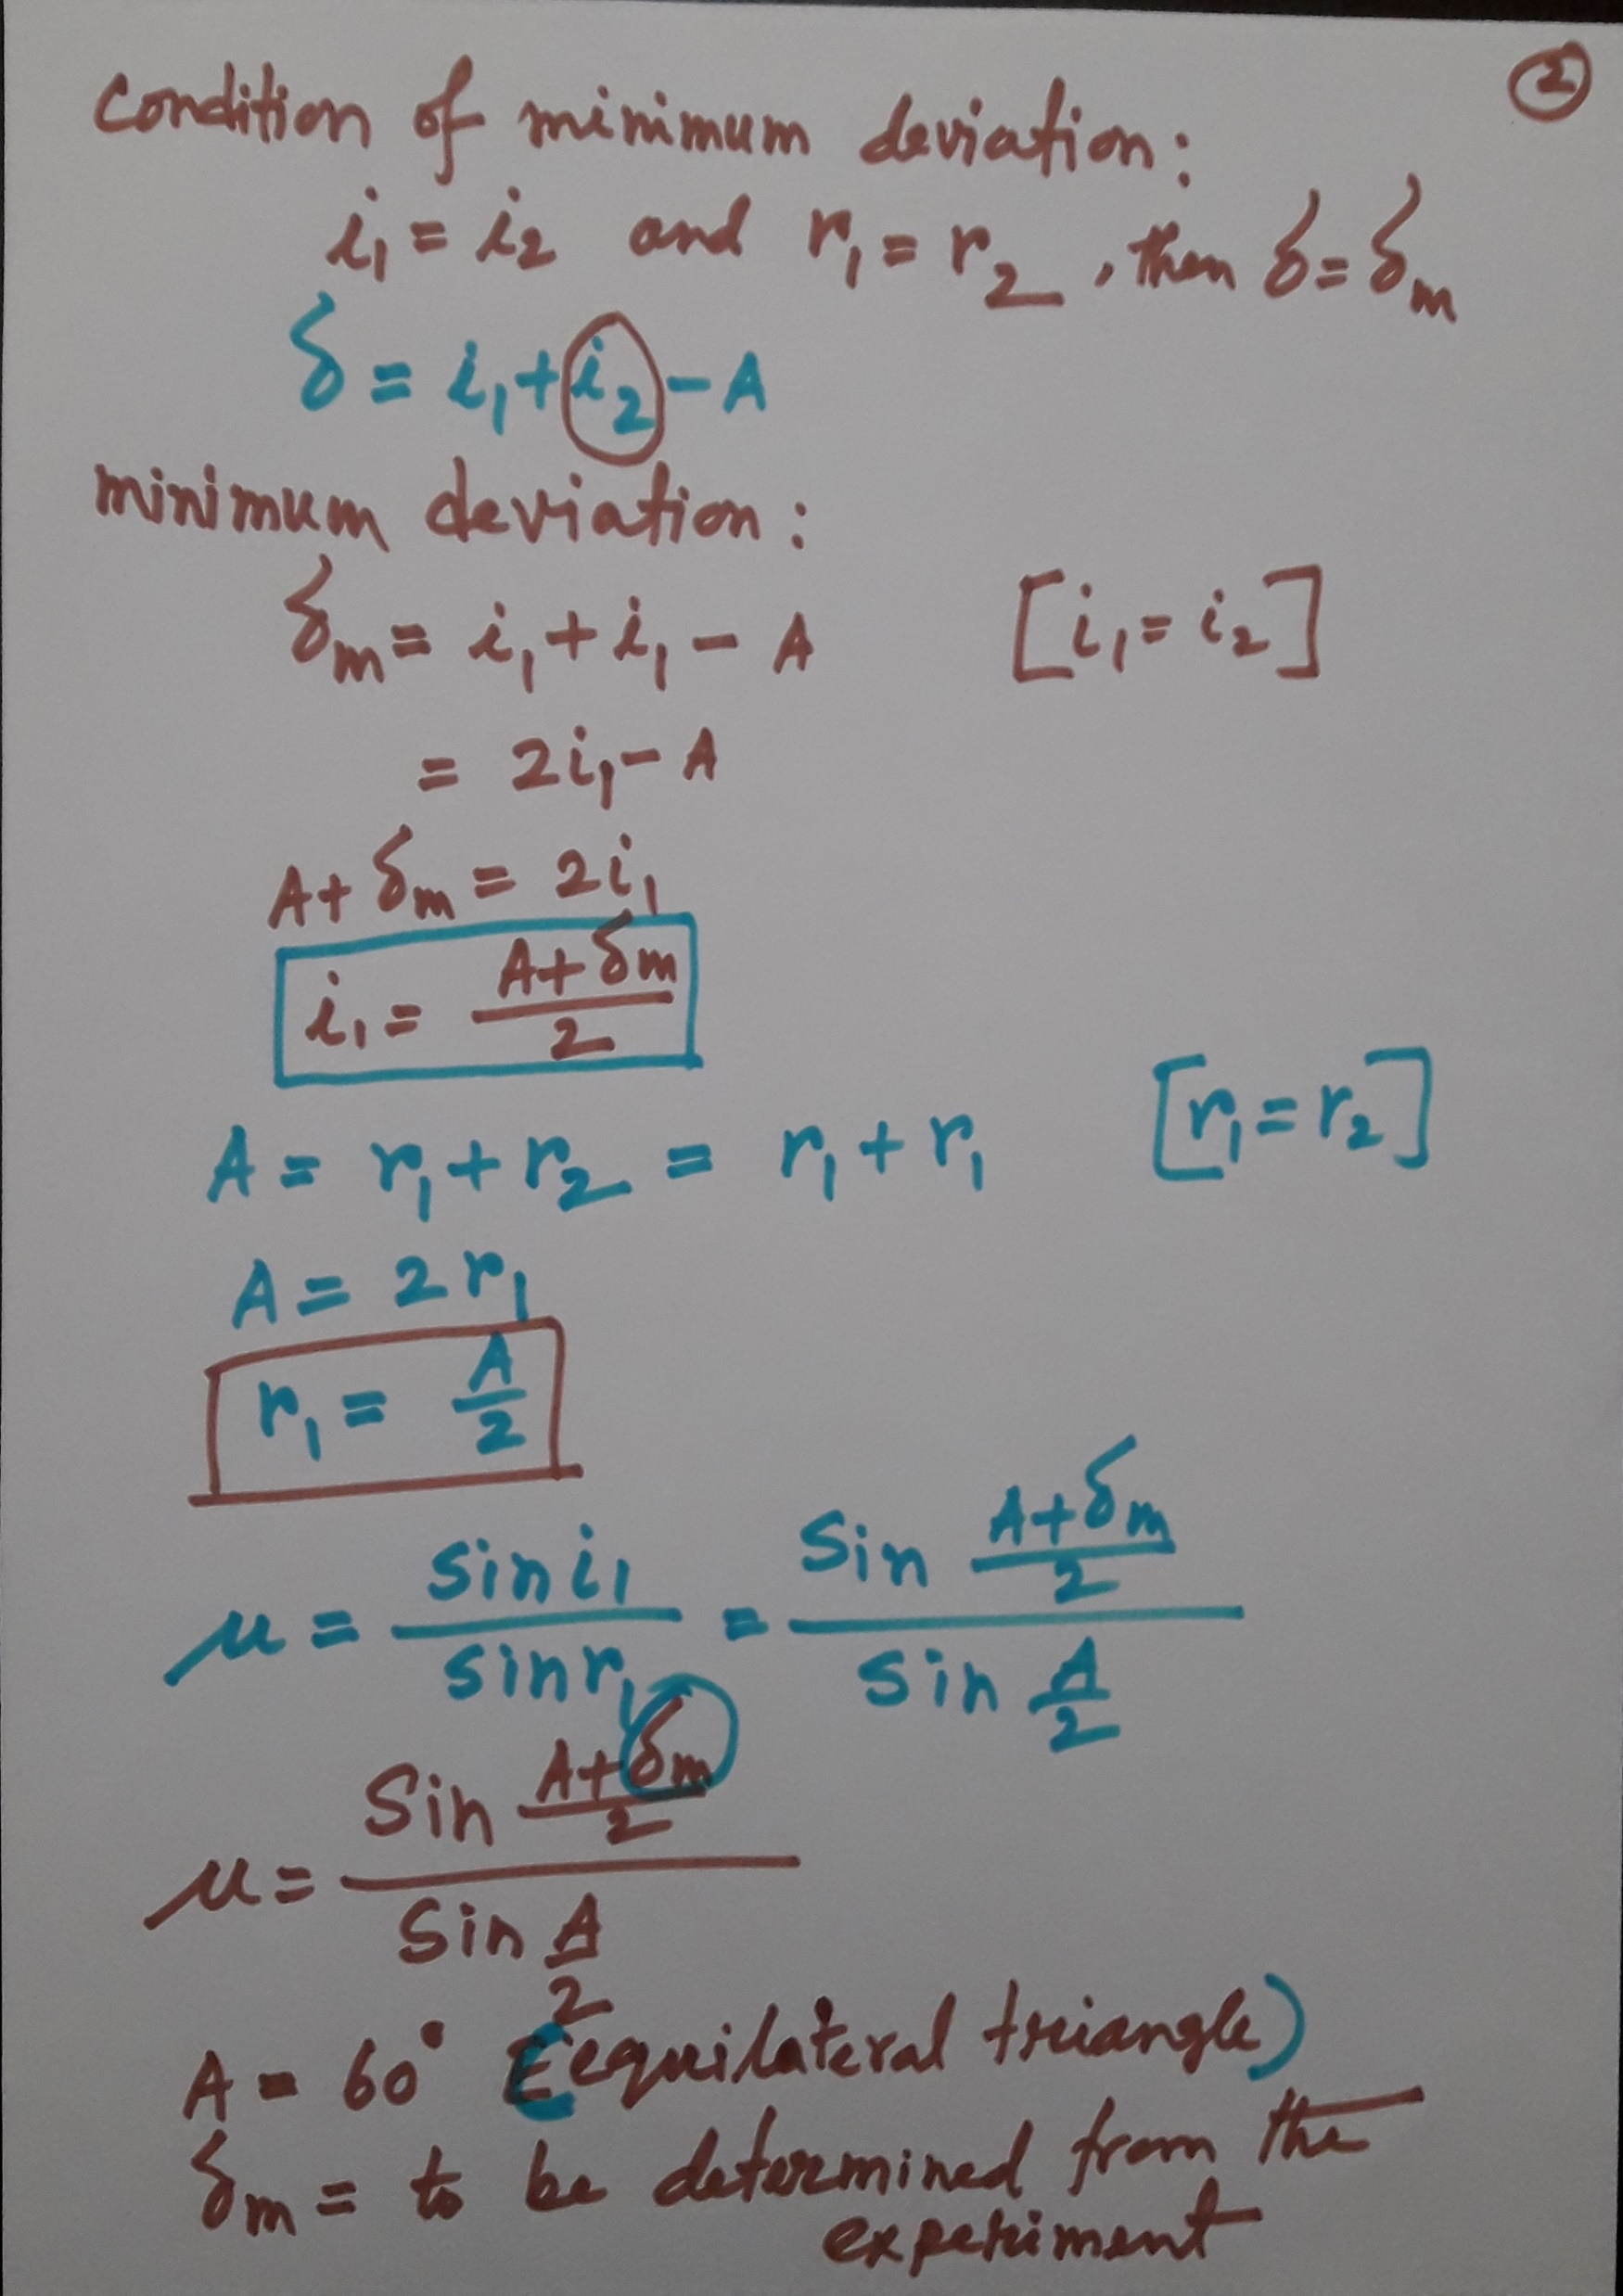 ②
Condition of minimum deviation:
i₁ = i₂ and r₁ = r₂, then δ = δm
δ = i₁ + i₂ - A
minimum deviation:
δm = i₁ + i₁ - A [i₁ = i₂]
= 2i₁ - A
A + δm = 2i₁
i₁ = (A + δm)/2
A = r₁ + r₂ = r₁ + r₁ [r₁ = r₂]
A = 2r₁
r₁ = A/2
μ = sin i₁ / sin r₁ = sin (A + δm)/2 / sin A/2
μ = sin (A + δm)/2 / sin A/2
A = 60° (equilateral triangle)
δm = to be determined from the
experiment